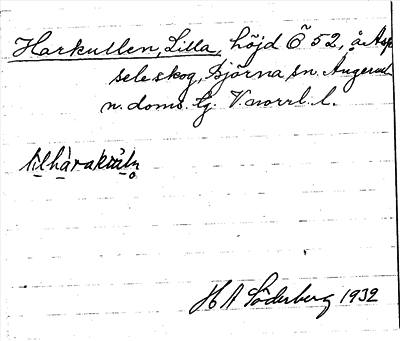 Harkullen, Lilla, höjd Ö 52, å Asp
seleskog, Björna sn. Ångerm.
n. doms. lg. V.norrl. l.
lilhàrakùln
H A Söderberg 1932